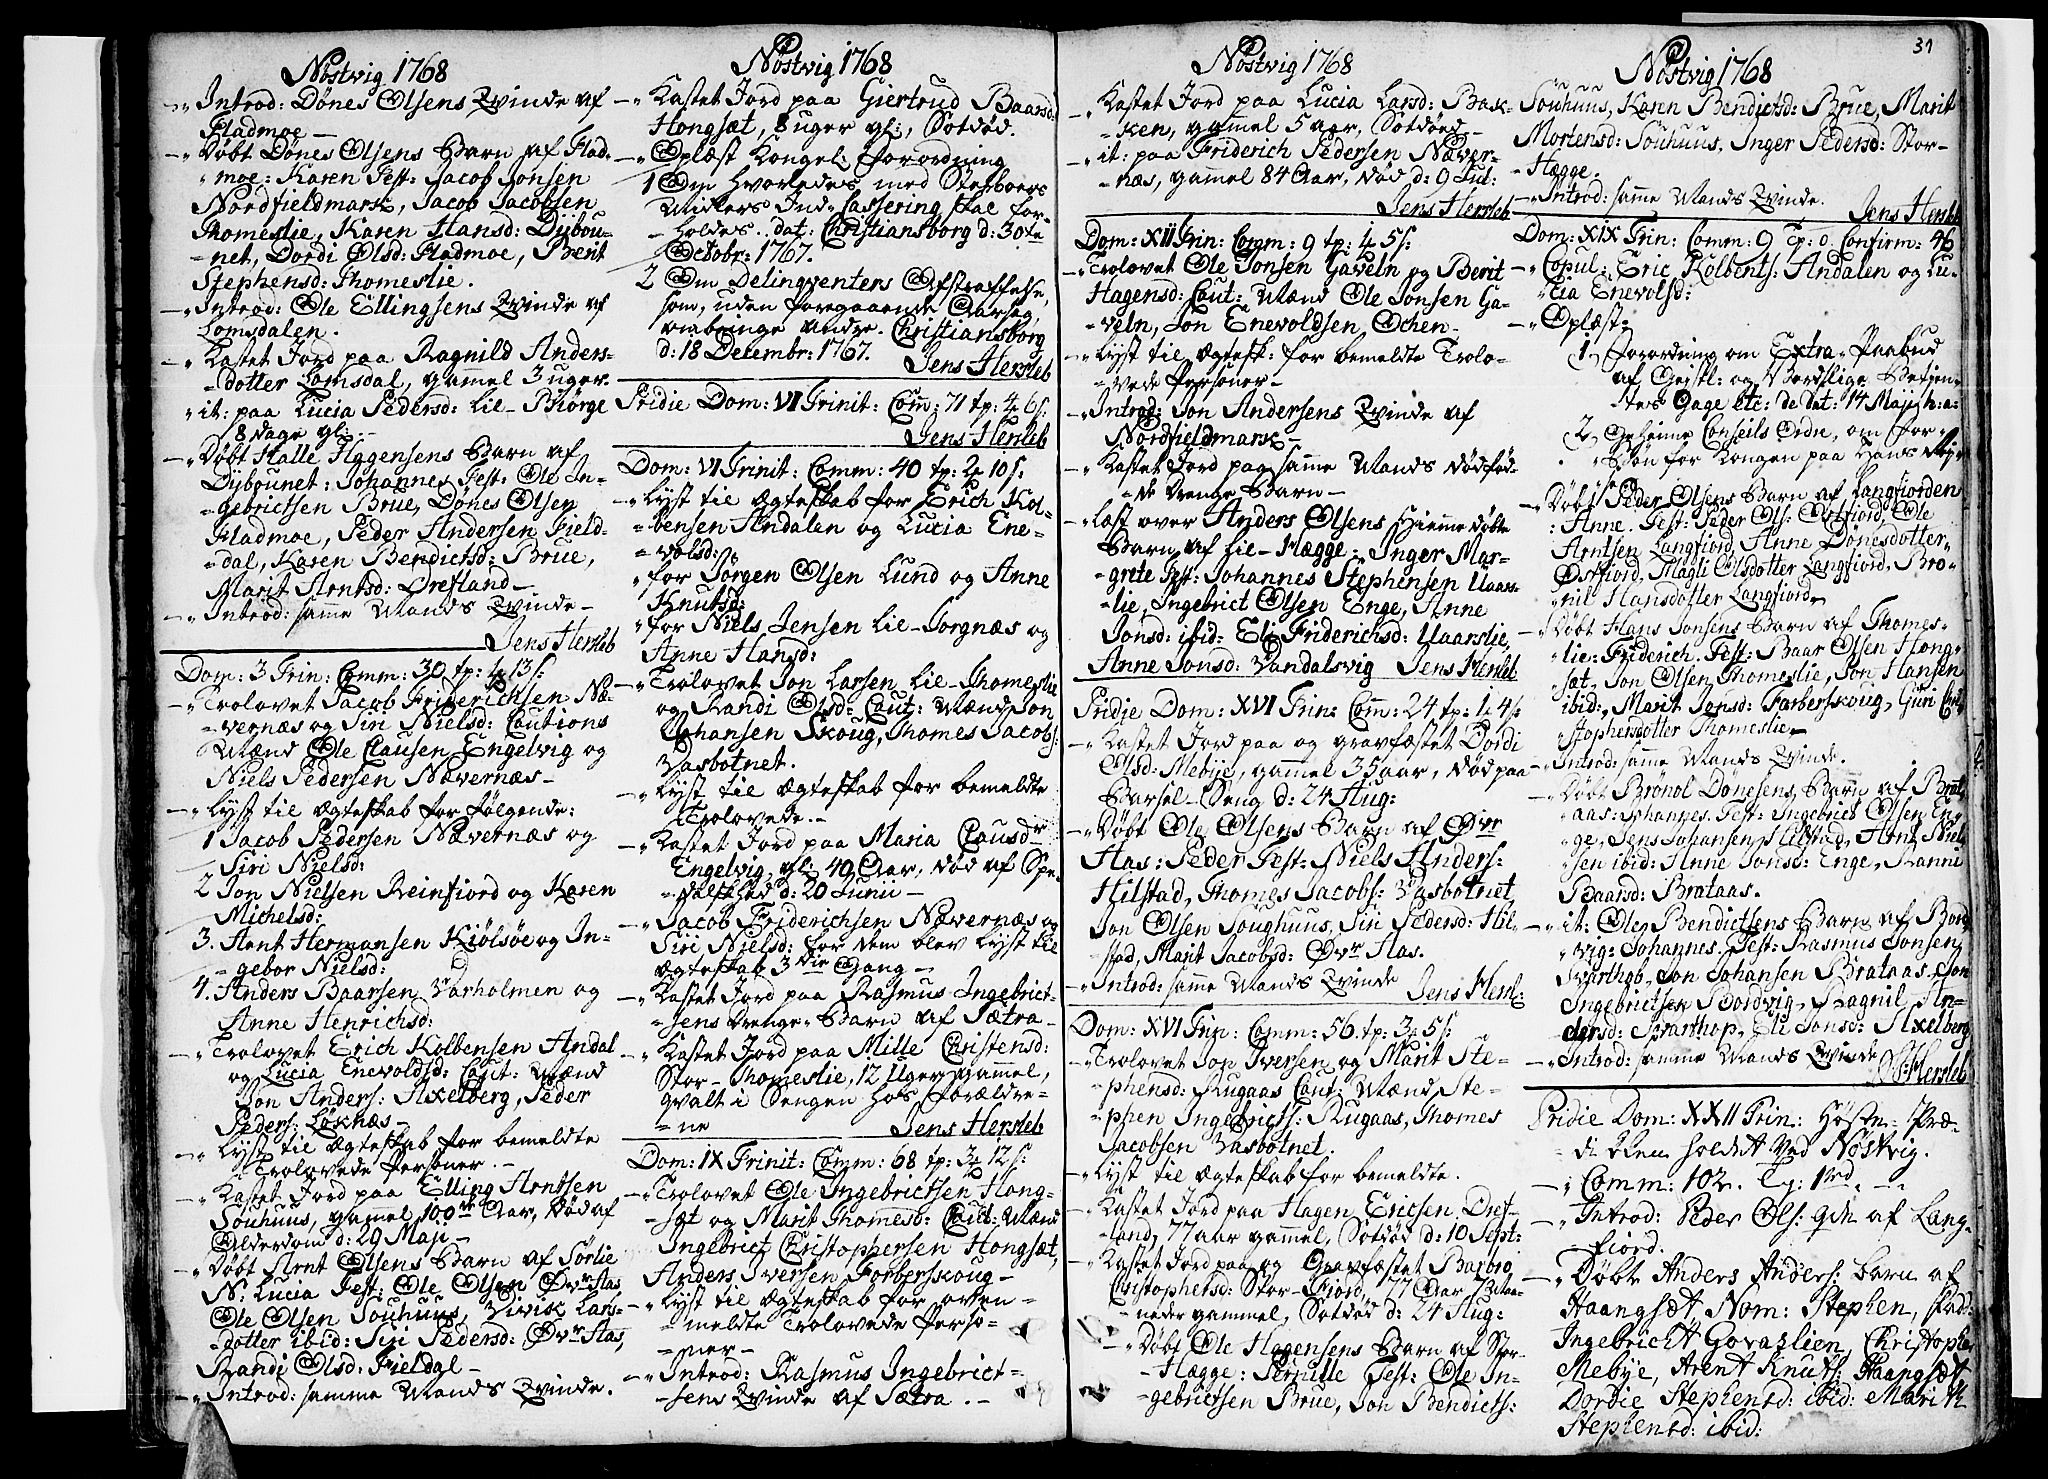 Nøstvig 1768
-„ Introd: Dønes Olsens Qvinde af
Fladmoe -
-„ Døbt Dønes Olsens Barn af Flad-
„moe: Karen Test: Jacob Jonsen
Nordfieldmark, Jacob Jacobsen
Thomeslie, Karen Hansd: Dÿbou-
„net, Dordi Olsd: Fladmoe, Berit
Stephensd: Thomeslie.
-„ Introd: Ole Ellingsens Qvinde af
Lomsdalen.
-„ Kastet Jord paa Ragnild Anders-
„dotter Lomsdal, gammel 3 uger.
„ it: paa Lucia Pedersd: Lie-Biørge
8 dage gl: -
-„ Døbt Halle Hagensens Barn af
Dÿbounet: Johannes Test: Ole In-
„gebrictsen Brue, Dønes Olsen
Fladmoe, Peder Andersen Field-
„dal, Karen Bendictsd: Brue,
Marit Arntsd: Drefland -
-„ Introd: samme Mands Qvinde -
Jens Hersleb
Dom: 3 Trin: Comm: 30 tp: 4 13 s:
-„ Trolovet Jacob Friderichsen Næ-
„vernæs og Siri Nielsd: Cautions
Mænd Ole Clausen Engelvig og
Niels Pedersen Nævernæs -
-„ Lyst til Ægteskab for følgende:
1 Jacob Pedersen Nævernæs og
Siri Nielsd:
2 Jon Nielsen Reinfiord og Karen
Michelsd:
3. Arnt Hermansen Kiølsøe og In-
„gebor Nielsd:
4. Anders Baarsen Varholmen og
Anne Henrichsd:
-„ Trolovet Erich Kolbensen Andal
og Lucia Enevoldsd: Caut: Mænd
Jon Anders: Axelberg, Peder
Peders: Løknæs -
-„ Lyst til Ægteskab for bemeldte
Trolovede Personer. -
-„ Kastet Jord paa Elling Arntsen
Souhuus, gammel 100 Aar, død af
Alderdom d: 29 Maji -
-„ Døbt Arnt Olsens Barn af Sørlie
N: Lucia Test: Ole Olsen Øvr Aas,
Ole Olsen Souhuus, Zivisk Lars-
„dotter ibid: Siri Pedersd: Øvr Aas,
Randi Olsd: Fieldal -
-„ Introd: samme Mands Qvinde.
Nøstvig 1768
-„ Kastet Jord paa Giertrud Baarsd:
Hongsæt, 8 uger gl:, Sotdød.
-„ Oplæst Kongel: Forordning
1 Om hvorledes med Sterboers
Midlers Ind-Cassering skal for-
-holdes.. dat: Christiansborg d: 30te
Octobr: 1767.
2 Om Delinqventers Afstraffelse,
som, uden foregaaende Aarsag,
ombringe andre. Christiansborg
d: 18 Decembr: 1767.
Jens Hersleb
Pridie Dom: VI Trinit: Com̄: 71 tp: 4 6 s:
Jens Hersleb
Dom: VI Trinit: Comm: 40 tp: 2 10 s:
-„ Lyst til Ægteskab for Erich Kol-
„bensen Andalen og Lucia Ene-
„volsd:
„ for Jørgen Olsen Lund og Anne
Knutsd:
„ for Niels Jensen Lie-Jorgnæs og
Anne Hansd:
-„ Trolovet Jon Larsen Lie-Thomeslie
og Randi Olsd: Caut: Mænd Jon
Johansen Skoug, Thomes Jacobs:
Vasbotnet.
-„ Lyst til Ægteskab for bemeldte
Trolovede. -
-„ Kastet Jord paa Maria Clausdr
Engelvig, gl: 40 Aar, død af Spe-
„dalskhed d: 20 Junii -
-„ Jacob Friderichsen Nævernæs og
Siri Nielsd: for dem blev Lyst til
Ægteskab 3die Gang -
-„ Kastet Jord paa Rasmus Ingebrict-
„sens Drenge-Barn af Sætra -
-„ Kastet Jord paa Mille Christensd:
Stor-Thomeslie, 12 Uger gammel,
qvalt i Sengen hos Forældre-
„ne Jens Hersleb
Dom: IX Trinit: Comm: 68 tp: 3 12 s:
-„ Trolovet Ole Ingebrictsen Hong-
„sæt og Marit Thomesd: Caut: Mænd
Ingebrict Christophersen Hongsæt,
Anders Iversen Forberskoug -
-„ Lyst til Ægteskab for oven-
„meldte Trolovede Perso-
„ner -
-„ Introd: Rasmus Ingebrict-
„sens Qvinde af Sætra. -
Nøstvig 1768
-„ Kastet Jord paa Lucia Larsd: Bak-
„ken, gammel 5 aar, Sotdøed -
-„ it: paa Friderich Pedersen Næver-
„næs, gammel 84 Aar, død d: 9 Jul:
Jens Hersleb
Dom: XII Trin: Comm: 9 tp: 4 5 s:
-„ Trolovet Ole Jonsen Gaveln og Berit
Hagensd: Caut: Mænd Ole Jonsen Ga-
„veln, Jon Enevoldsen Ochen -
-„ Lyst til Ægtesk: for bemeldte Trolo-
„vede Personer -
-„ Introd: Jon Andersens Qvinde af
Nordfieldmark -
-„ Kastet Jord paa samme Mands dødfød-
„de Drenge Barn -
-„ Læst over Anders Olsens Hiemme døbte
Barn af Lie-Hægge: Inger Mar-
grete Test: Johannes Stephensen Uaars-
„lie, Ingebrict Olsen Enge, Anne
Jonsd: ibid: Eli Friderichsd: Uaarslie,
Anne Jonsd: Vandalsvig Jens Hersleb
Pridje Dom: XVI Trin: Com̄: 24 tp: 1 4 s:
-„ Kastet Jord paa og gravfæstet Dordi
Olsd: Mebÿe, gammel 35 aar, død paa
Barsel-Seng d: 24 Aug:
-„ Døbt Ole Olsens Barn af Øvr
Aas: Peder Test: Niels Anders:
Hilstad, Thomes Jacobs: Vasbotnet,
Jon Olsen Soughuus, Siri Pedersd: Hil-
stad, Marit Jacobsd: Øvr Aas.
-„ Introd: samme Mands Qvinde
Jens Hersl:
Dom: XVI Trin: Comm: 56. tp: 3 5 s:
-„ Trolovet Jon Iversen og Marit Ste-
„phensd: Rugaas Caut: Mænd Ste-
„phen Ingebricts: Rugaas, Thomes
Jacobsen Vasbotnet.
-„ Lyst til Ægteskab for bemeldte.
-„ Kastet Jord paa Hagen Ericsen Dref-
„land, 77 aar gammel, Sotdød d: 10 Sept:
-„ Kastet Jord paa og Gravfæstet Barbro
Christophersd: Stor-Fiord, 77 Aar
„neder gammel, Sotdød d: 24 Aug:
-„ Døbt Ole Hagensens Barn af Stor-
Hægge: Pernille Test: Ole In-
„gebrictsen Brue, Jon Bendicts:
31
Nøstvig 1768
Souhuus, Karen Bendictsd: Brue, Marit
Mortensd: Souhuus, Inger Pedersd: Stor-
-Hægge.
-„ Introd: samme Mands Qvinde.
Jens Hersleb
Dom: XIX Trin: Comm: 9 Tp: 0. Confirm: 46
-„ Copul: Eric Kolbents: Andalen og Lu-
„cia Enevolsd:
-„ Oplæst:
1, Forordning om Extra-Paabud
af Geistl: og Verdslige Betjen-
„tes Gage etc: de dat: 14 Maji h: a:
2, Geheime Conseils Ordre, om For-
„Bøn for Kongen paa Hans Rejse
-„ Døbt Peder Olsens Barn af Langfiorden
: Anne. Test: Peder Ols: Østfiord, Ole
Arntsen Langfiord, Anne Dønesdotter
Østfiord, Magli Olsdotter Langfiord, Bro-
„nil Hansdotter Langfiord
-„ Døbt Hans Jonsens Barn af Thomes-
„lie: Friderich. Test: Baar Olsen Hong-
„sæt, Jon Olsen Thomeslie, Jon Hansen
ibid:, Marit Jonsd: Farberskoug, Guri Chri-
„stophersdotter Thomeslie
-„ Introd: samme Mands Qvinde.
-„ Døbt Brønol Dønesens Barn af Brat-
„aas: Johannes. Test: Ingebrict Olsen En-
„ge, Jens Johansen Hilstad, Arnt Niel-
„sen ibid: Anne Jonsd: Enge, Ranne
Baarsd: Brataas.
-„ it: Ole Bendictsens Barn af Bord-
„vig: Johannes. Test: Rasmus Jonsen
Svarthop, Jon Johansen Brataas, Jon
Ingebrictsen Bordvig, Ragnil An-
dersd: Svarthop, Eli Jonsd: Axelberg
-„ Introd: samme Mands Qvinde
J: Hersleb
Pridie Dom: XXII Trin: Høste-Præ-
diken holdt Ved Nøstvig.
-„ Comm: 102. Tp: 1 rd.
-„ Introd: Peder Ols: qde af Lang-
fiord.
-„ Døbt Anders Anders: barn af
Haangsæt Nom: Stephen, fad:
Ingebricht Govaslien, Christophe
Mebÿe, Arent Knuts: Haangsæt
Dordie Stephensd: ibid: Marith
Stephensd: ibid: